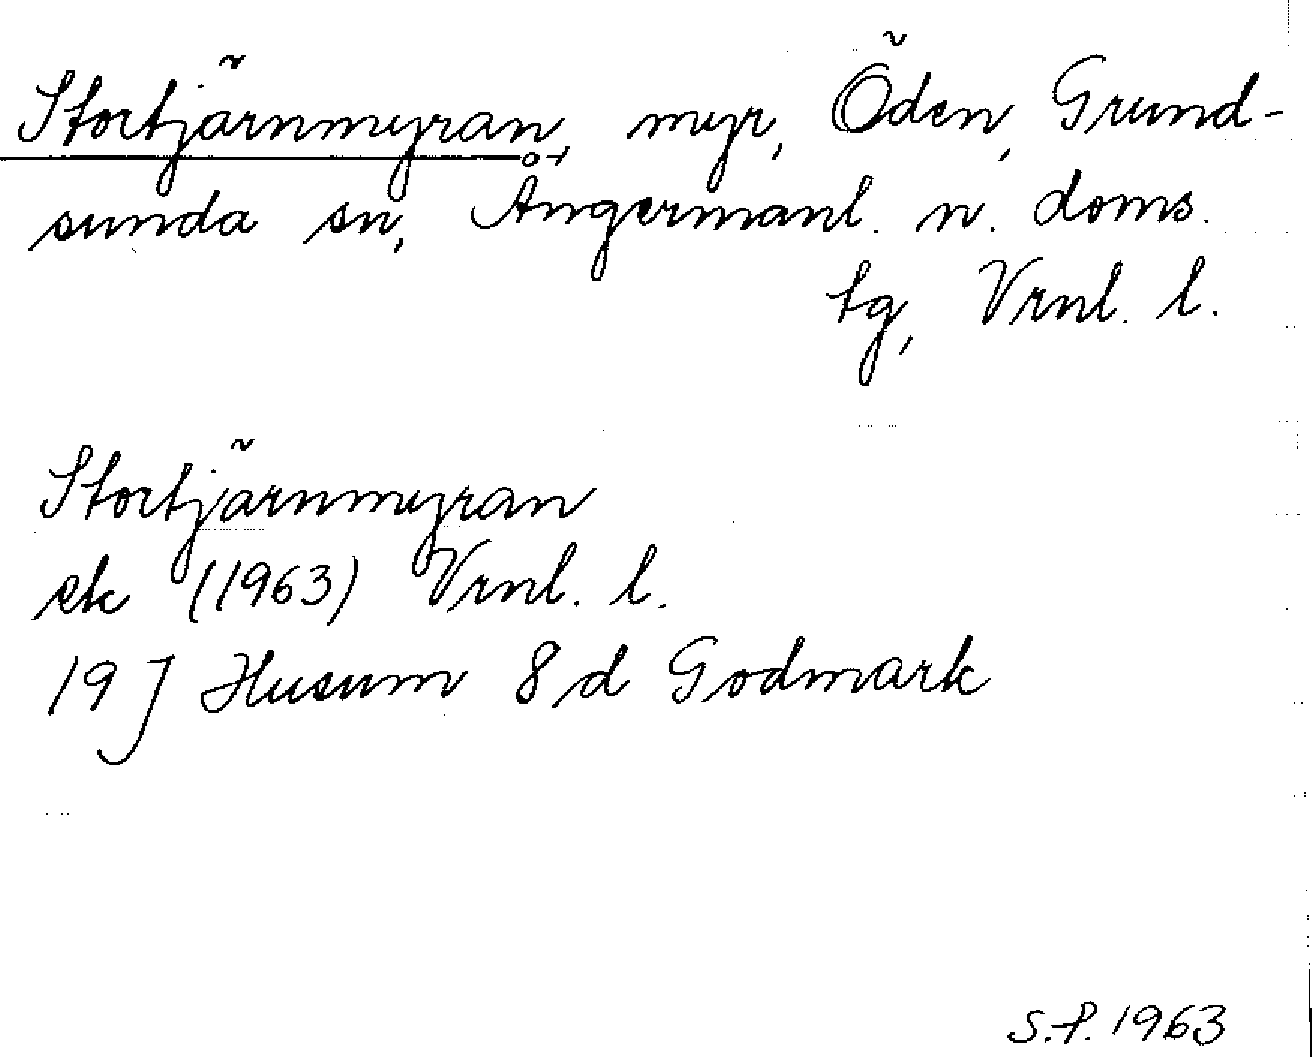 Stortjärnmyran, myr, Öden, Grund-
sunda sn, Ångermanl. n. doms.
tg, Vrnl. l.
Stortjärnmyran
ek (1963) Vrnl. l.
19 J Husum 8 d Godmark
S.P. 1963